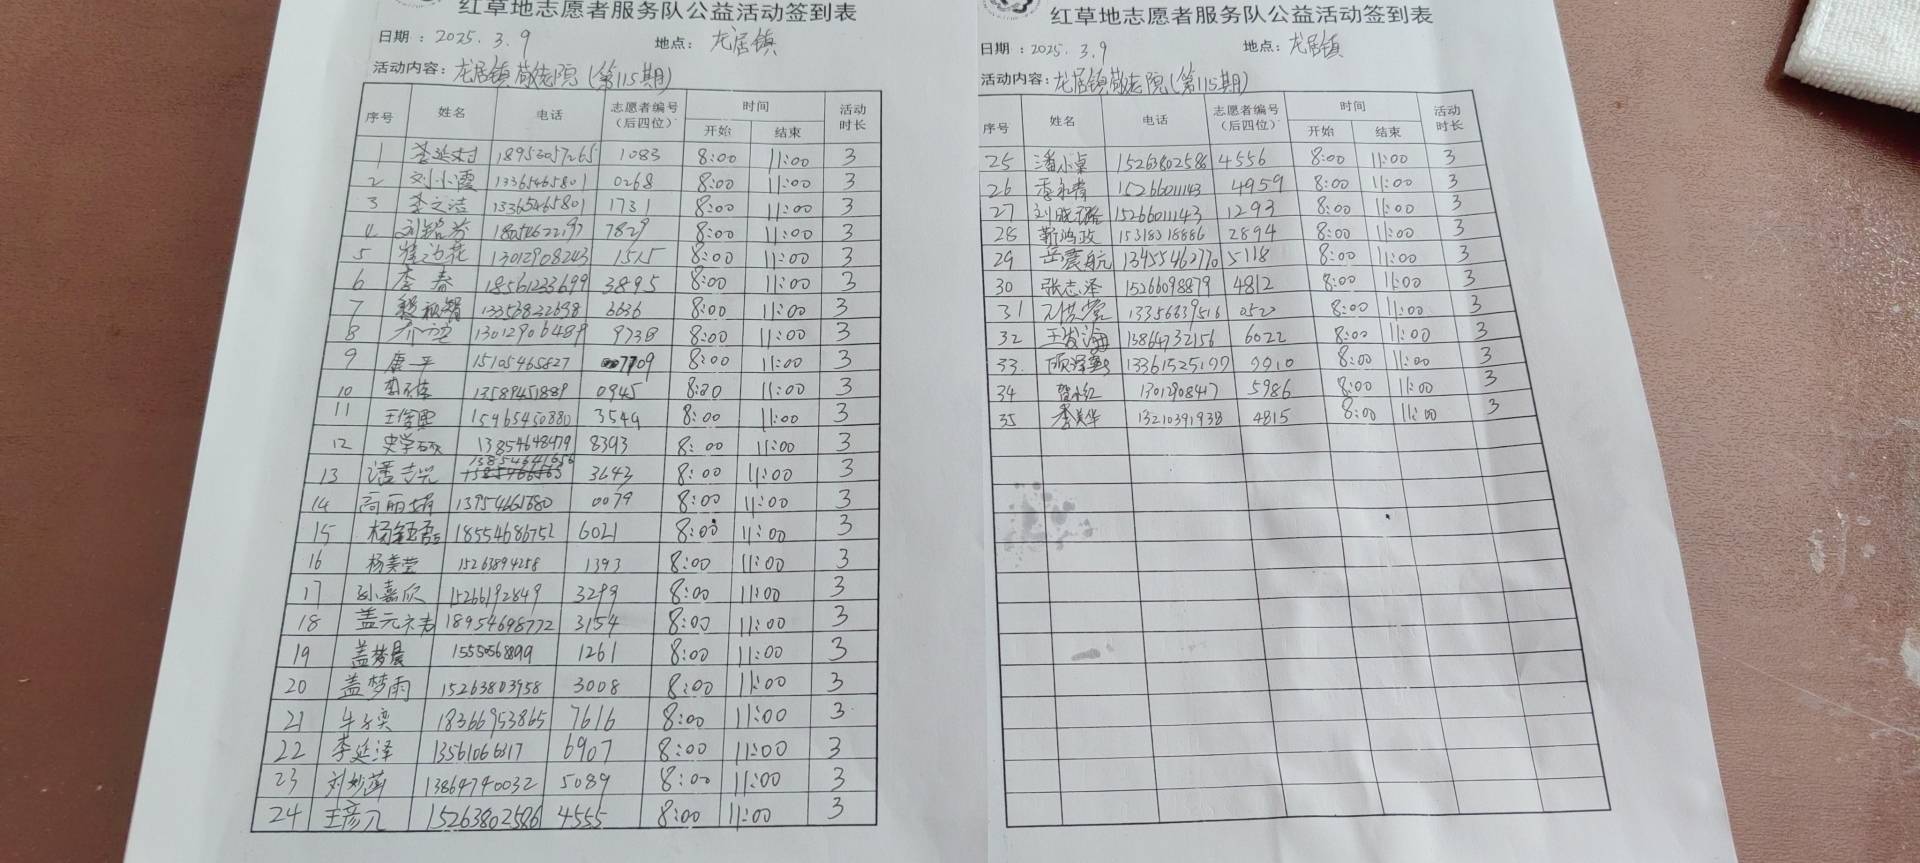 红草地志愿者服务队公益活动签到表
日期：2025.3.9 地点：龙居镇
活动内容：龙居镇敬老院(第115期)
序号 姓名 电话 志愿者编号(后四位) 时间 开始 结束 活动时长
1 李延村 18953057265 1083 8:00 11:00 3
2 刘小霞 13365465801 0268 8:00 11:00 3
3 李之洁 13365465801 1731 8:00 11:00 3
4 18054622197 7829 8:00 11:00 3
5 13012908243 1515 8:00 11:00 3
6 李春 18561233699 3895 8:00 11:00 3
7 13356822698 6636 8:00 11:00 3
8 13012906489 9738 8:00 11:00 3
9 康平 15105465827 7709 8:00 11:00 3
10 13589451889 0945 8:00 11:00 3
11 15965450880 3549 8:00 11:00 3
12 13854648479 8393 8:00 11:00 3
13 13854641656 3643 8:00 11:00 3
14 高丽娟 13954661680 0079 8:00 11:00 3
15 18554686752 6021 8:00 11:00 3
16 杨美莹 15263894258 1393 8:00 11:00 3
17 孙嘉欣 15266192849 3299 8:00 11:00 3
18 盖元 18954698772 3154 8:00 11:00 3
19 盖梦晨 1555056899 1261 8:00 11:00 3
20 盖梦雨 15263803958 3008 8:00 11:00 3
21 牛子奕 18366953865 7616 8:00 11:00 3
22 李延泽 13561066317 6907 8:00 11:00 3
23 刘妙涵 13864740032 5089 8:00 11:00 3
24 王彦几 15263802586 4555 8:00 11:00 3
红草地志愿者服务队公益活动签到表
日期：2025.3.9 地点：龙居镇
活动内容：龙居镇敬老院(第115期)
序号 姓名 电话 志愿者编号(后四位) 时间 开始 结束 活动时长
25 潘小桌 15263802586 4556 8:00 11:00 3
26 15266011143 4959 8:00 11:00 3
27 刘晓璐 15266011143 1293 8:00 11:00 3
28 靳鸿政 15318318886 2894 8:00 11:00 3
29 岳震航 13455462770 5118 8:00 11:00 3
30 张志泽 15266098879 4812 8:00 11:00 3
31 13356639516 0520 8:00 11:00 3
32 王海 13864732156 6022 8:00 11:00 3
33 13361525197 9910 8:00 11:00 3
34 贺红 1301290847 5986 8:00 11:00 3
35 李美华 13210391938 4815 8:00 11:00 3